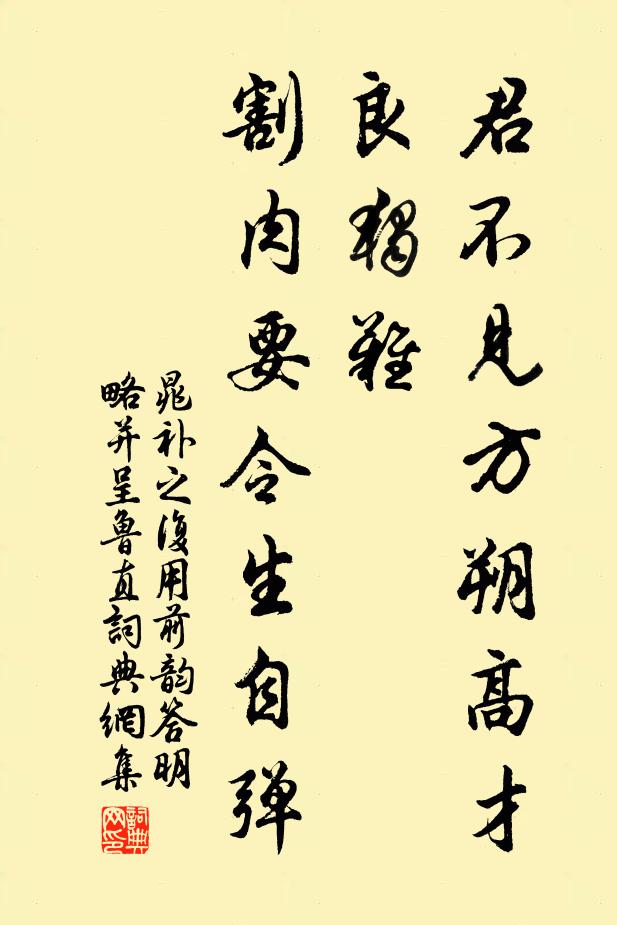 君不見方朔高才
良獨難
割肉要令生自弹
晁补之復用前韵答明
略并呈魯直詞典網集
詞典網印